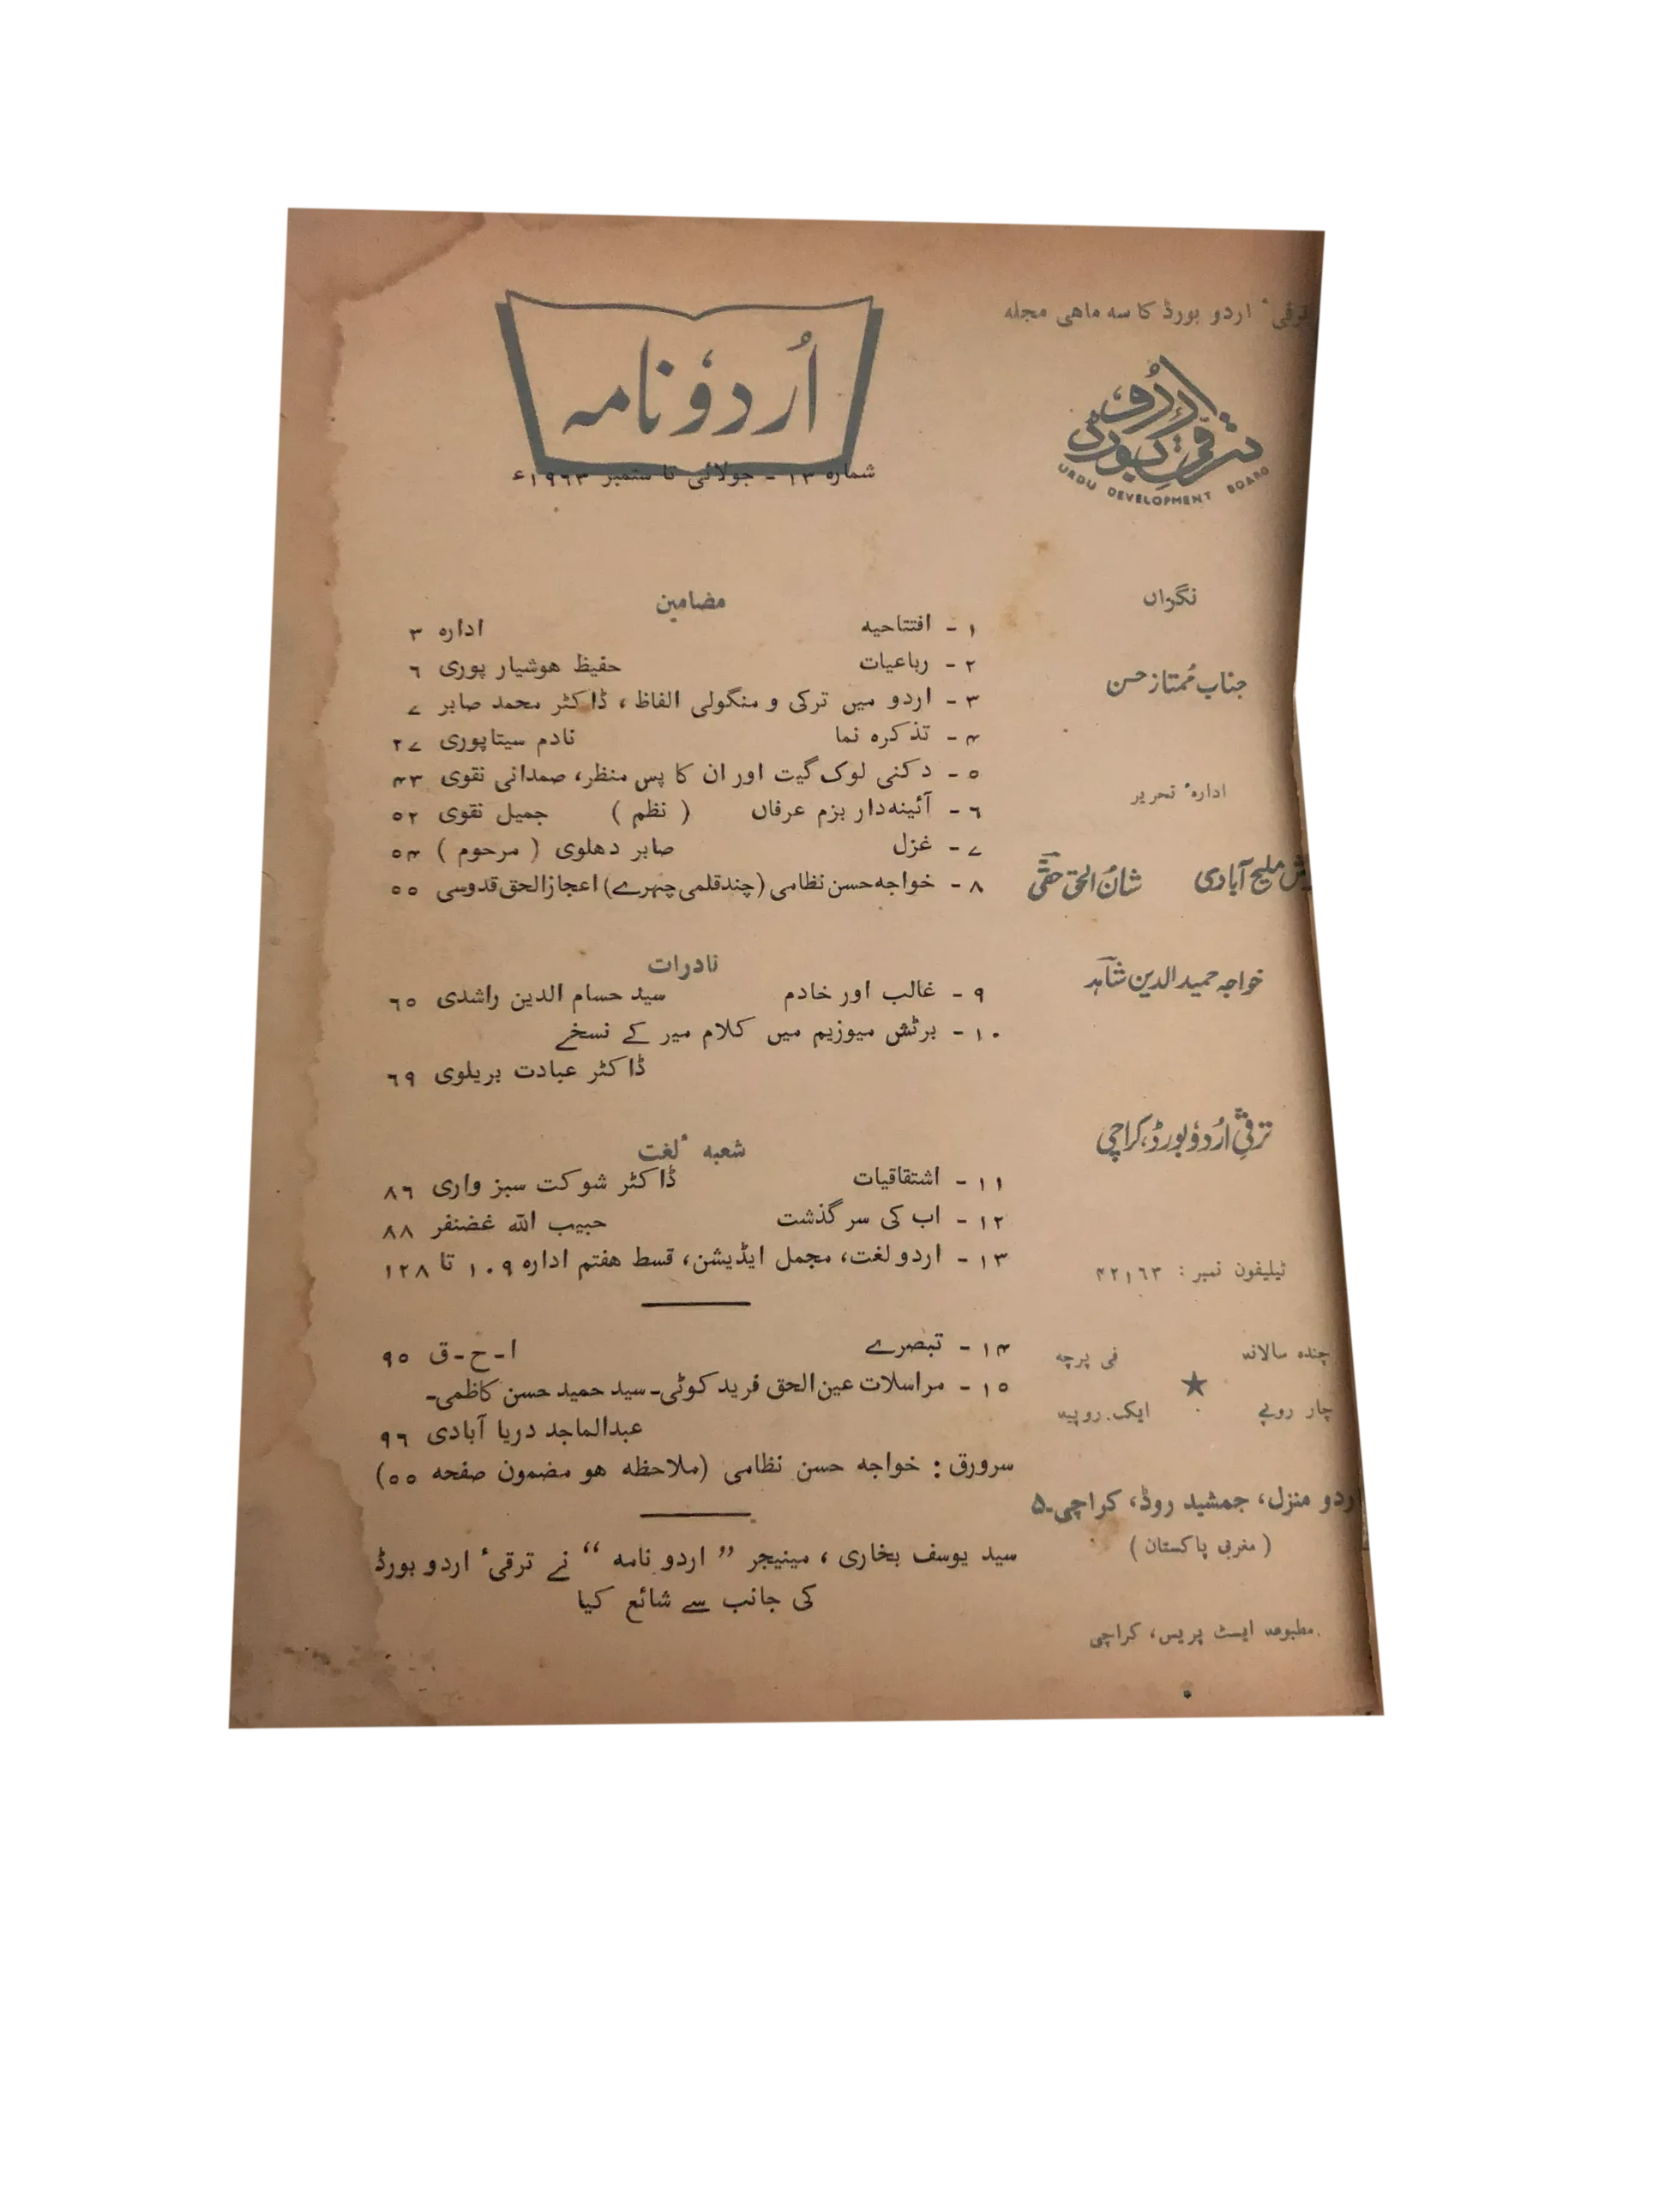 ترقیٔ اردو بورڈ کا سه ماهی مجله
ترقیٔ اردو بورڈ
URDU DEVELOPMENT BOARD
نگراں
جناب مُمتاز حسن
ادارۂ تحریر
ملیح آبادی شانُ الحق حقّی
خواجہ حمید الدین شاہد
ترقیِّ اُردو بورڈ، کراچی
ٹیلیفون نمبر : ۴۲۱۶۳
چنده سالانه فی پرچه
★
چار روپے ایک روپیه
اردو منزل، جمشید روڈ، کراچی۔۵
( مغربی پاکستان )
مطبوعه ایسٹ پریس، کراچی
اُردوٗ نامہ
شماره ۱۳ - جولائی تا ستمبر ۱۹۶۳ء
مضامین
۱ - افتتاحیه اداره ۳
۲ - رباعیات حفیظ هوشیار پوری ۶
۳ - اردو میں ترکی و منگولی الفاظ ، ڈاکٹر محمد صابر ۷
۴ - تذکره نما نادم سیتاپوری ۲۷
۵ - دکنی لوک گیت اور ان کا پس منظر، صمدانی نقوی ۴۳
۶ - آئینه‌دار بزم عرفاں ( نظم ) جمیل نقوی ۵۲
۷ - غزل صابر دهلوی ( مرحوم ) ۵۴
۸ - خواجه حسن نظامی (چند قلمی چہرے) اعجازالحق قدوسی ۵۵
نادرات
۹ - غالب اور خادم سید حسام الدین راشدی ۶۵
۱۰ - برٹش میوزیم میں کلام میر کے نسخے
ڈاکٹر عبادت بریلوی ۶۹
شعبهٔ لغت
۱۱ - اشتقاقیات ڈاکٹر شوکت سبز واری ۸۶
۱۲ - اب کی سر گذشت حبیب اللہ غضنفر ۸۸
۱۳ - اردو لغت، مجمل ایڈیشن، قسط هفتم اداره ۱۰۹ تا ۱۲۸
۱۴ - تبصرے ا-ح-ق ۹۵
۱۵ - مراسلات عین‌الحق فرید کوٹی- سید حمید حسن کاظمی-
عبدالماجد دریا آبادی ۹۶
سرورق : خواجه حسن نظامی (ملاحظه هو مضمون صفحه ۵۵)
سید یوسف بخاری ، مینیجر ” اردو نامه “ نے ترقیٔ اردو بورڈ
کی جانب سے شائع کیا